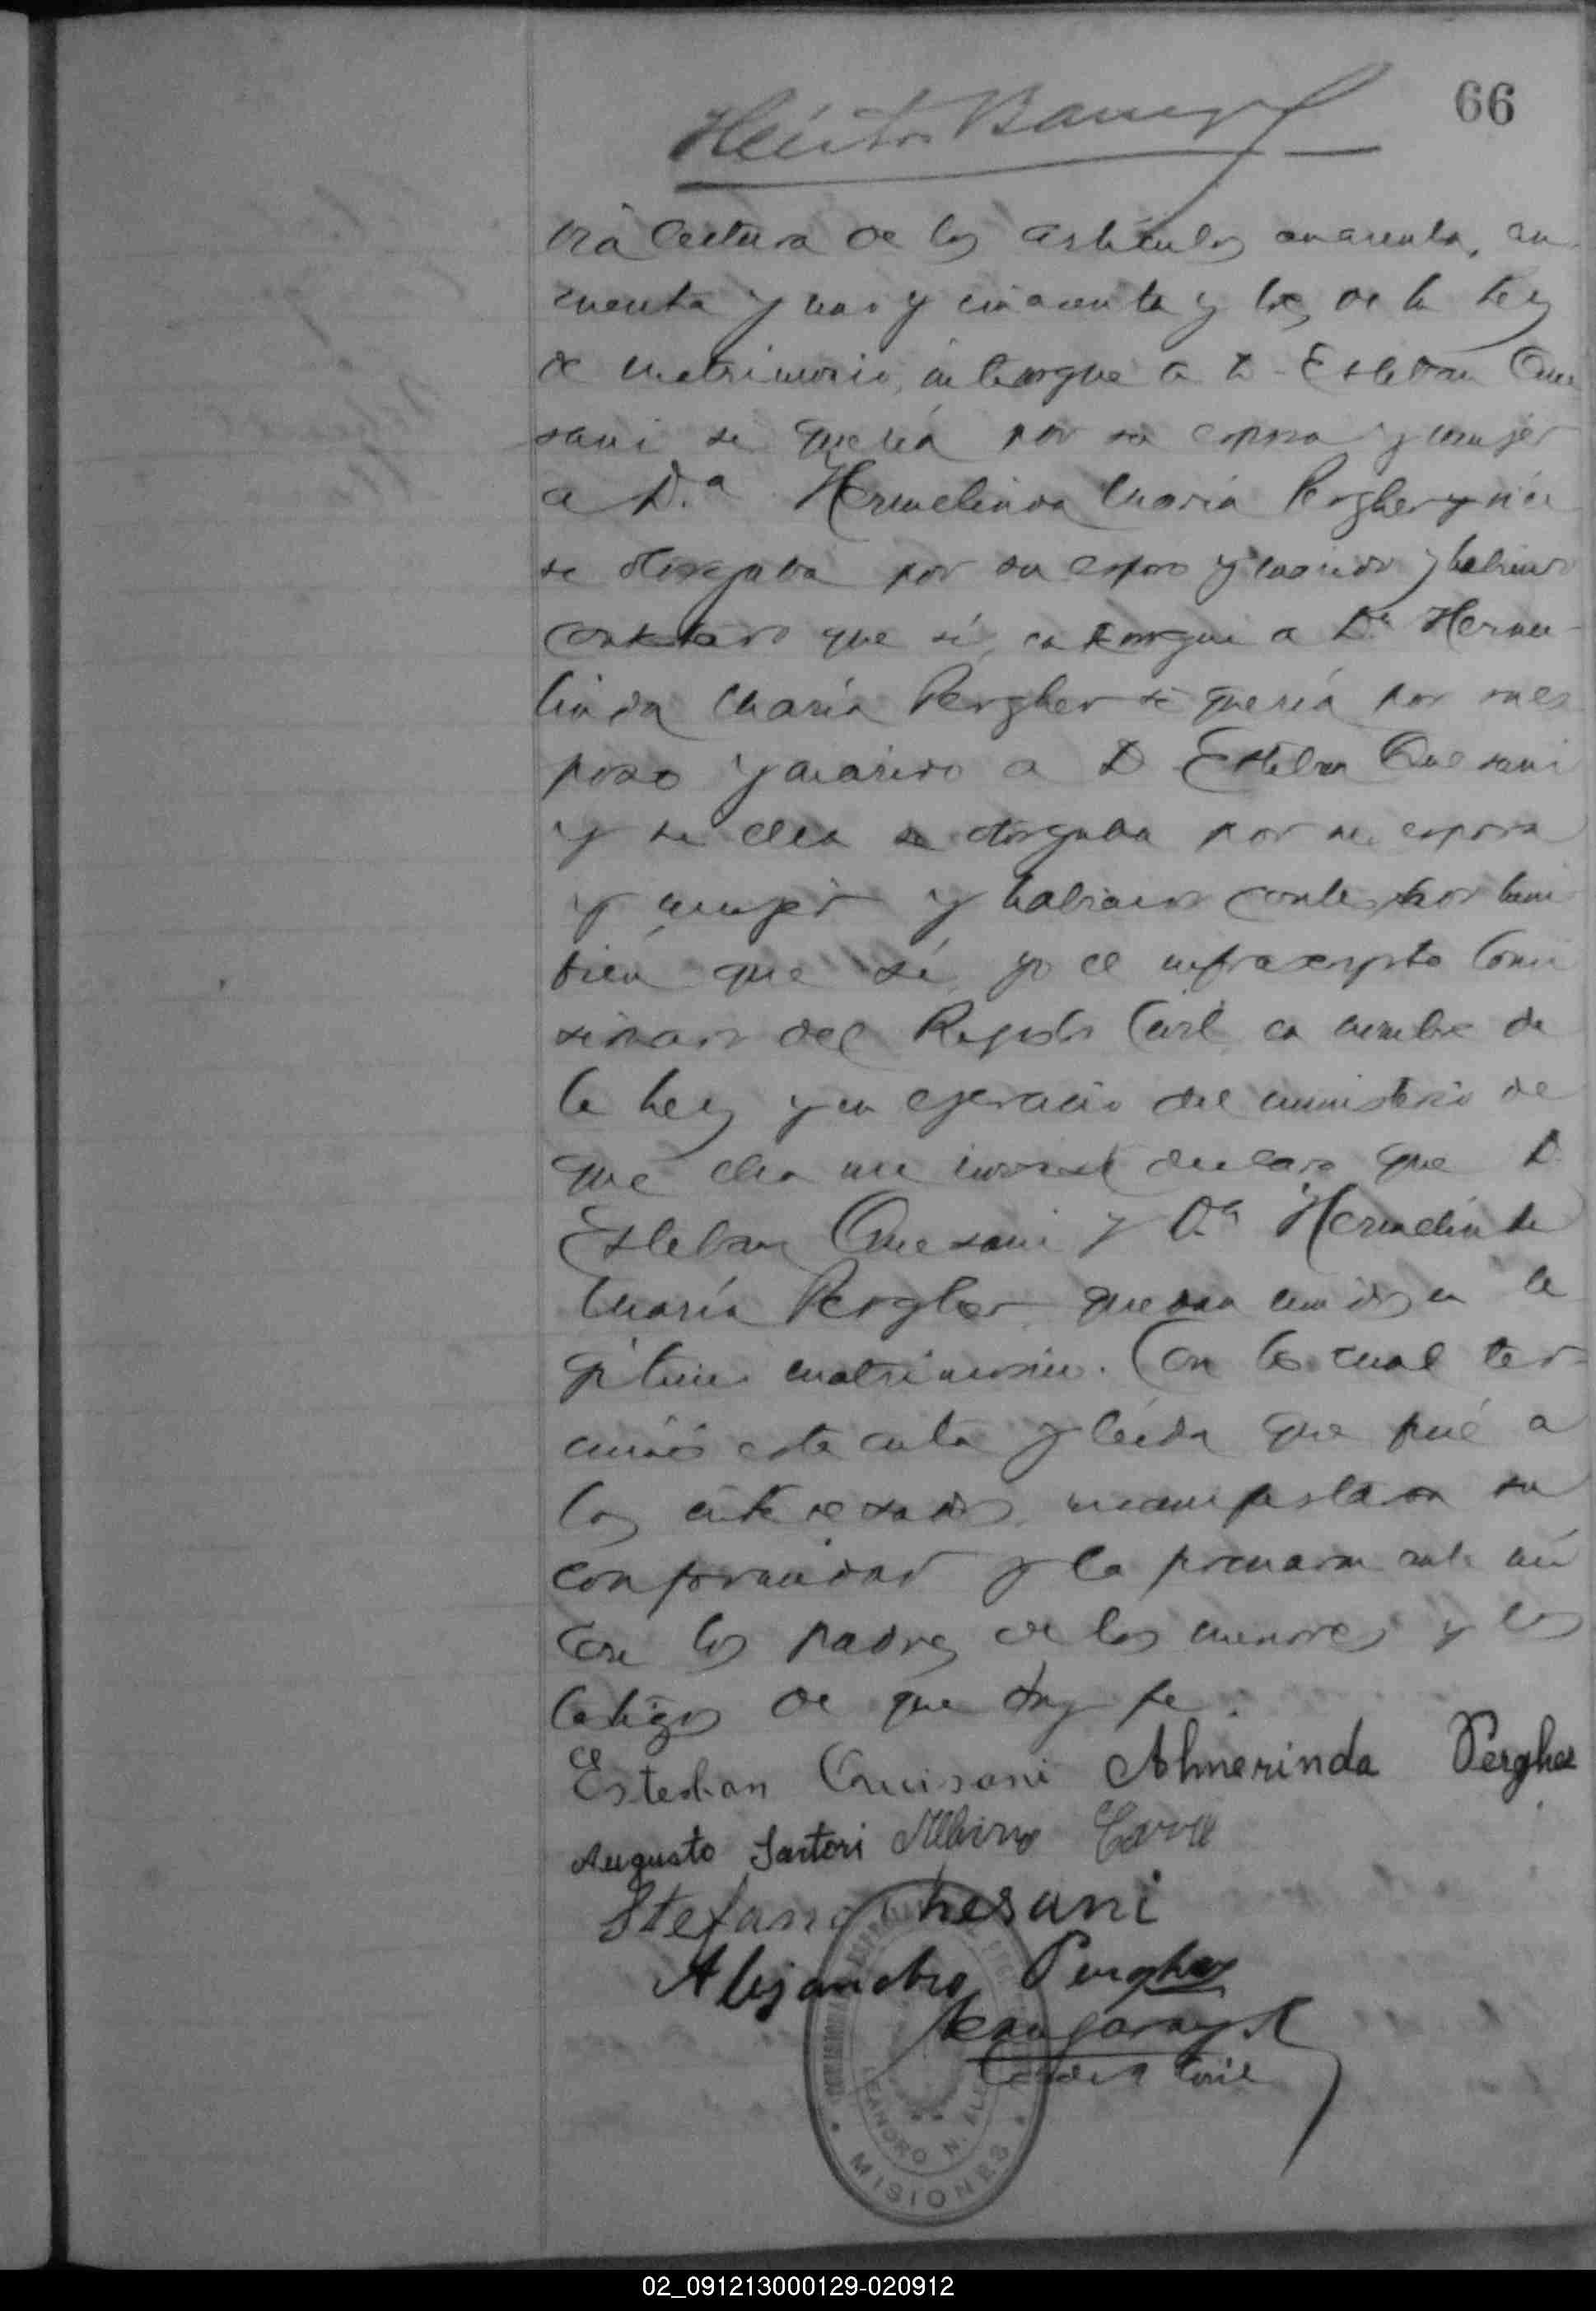 66
Héctor
lectura de los artículos cuarenta, cua
renta y uno y cuarenta y tres de la Ley
de matrimonio, interrogué a D. Esteban Que
sani si quería por su esposa y mujer
a D.ª Hermelinda María Pergher y si él
se otorgaba por su esposo y marido y habiendo
contestado que sí, interrogué a D.ª Herme
linda María Pergher si quería por su es
poso y marido a D Esteban Quesani
y si ella se otorgaba por su esposa
y mujer y habiendo contestado tam
bién que sí, yo el infrascripto Comi
sionado del Registro Civil en nombre de
la Ley y en ejercicio del ministerio de
que ella me inviste declaro que D.
Esteban Quesani y D.ª Hermelinda
María Pergher quedan unidos en le
gítimo matrimonio. Con lo cual ter
minó esta acta y leída que fué a
los interesados, manifestaron su
conformidad y la firmaron ante mí
con los padres de los menores y los
testigos de que doy fe.
Esteban Quisani Almerinda Pergher
Augusto Sartori Albino
Stefano Chesani
Alejandro Pergher
LEANDRO N. ALEM
MISIONES
02_091213000129-020912